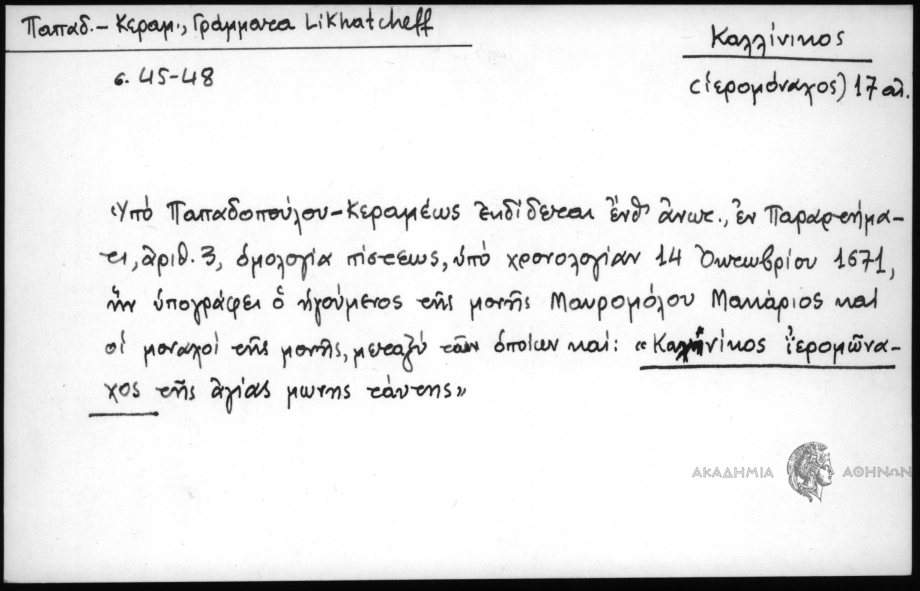 Παπαδ.-Κεραμ., Γράμματα Likhatcheff
Καλλίνικος
σ. 45-48
(ἱερομόναχος) 17 αἰ.
Ὑπό Παπαδοπούλου-Κεραμέως ἐκδίδεται ἔνθ' ἄνωτ., ἐν Παραρτήμα-
τι, ἀριθ. 3, ὁμολογία πίστεως, ὑπό χρονολογίαν 14 Ὀκτωβρίου 1671,
ἥν ὑπογράφει ὁ ἡγούμενος τῆς μονῆς Μαυρομόλου Μακάριος καί
οἱ μοναχοί τῆς μονῆς, μεταξύ τῶν ὁποίων καί: «Καληνίκος ἱερομῶνα-
χος τῆς ἁγίας μωνης τάυτης»
ΑΚΑΔΗΜΙΑ ΑΘΗΝΩΝ